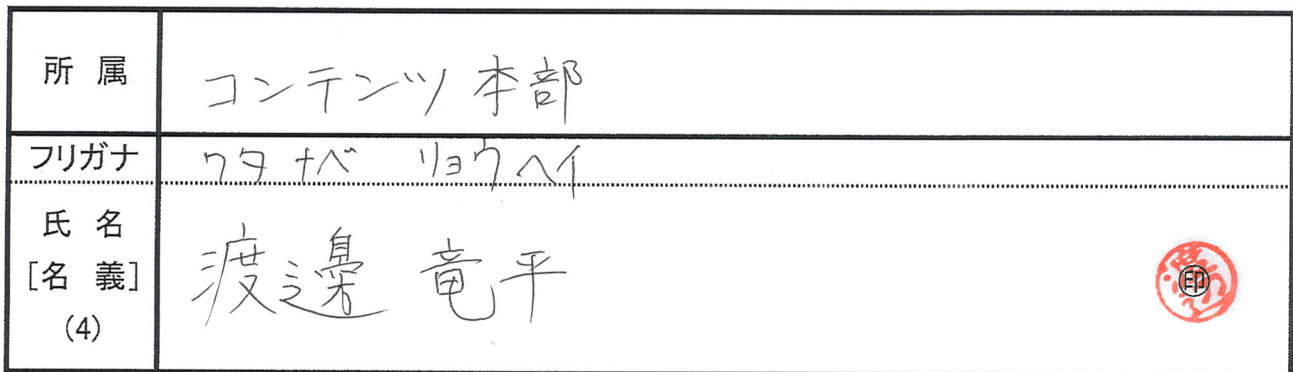 所 属 コンテンツ本部
フリガナ ワタナベ リョウヘイ
氏 名
[名 義] 渡邊 竜平 印
(4)